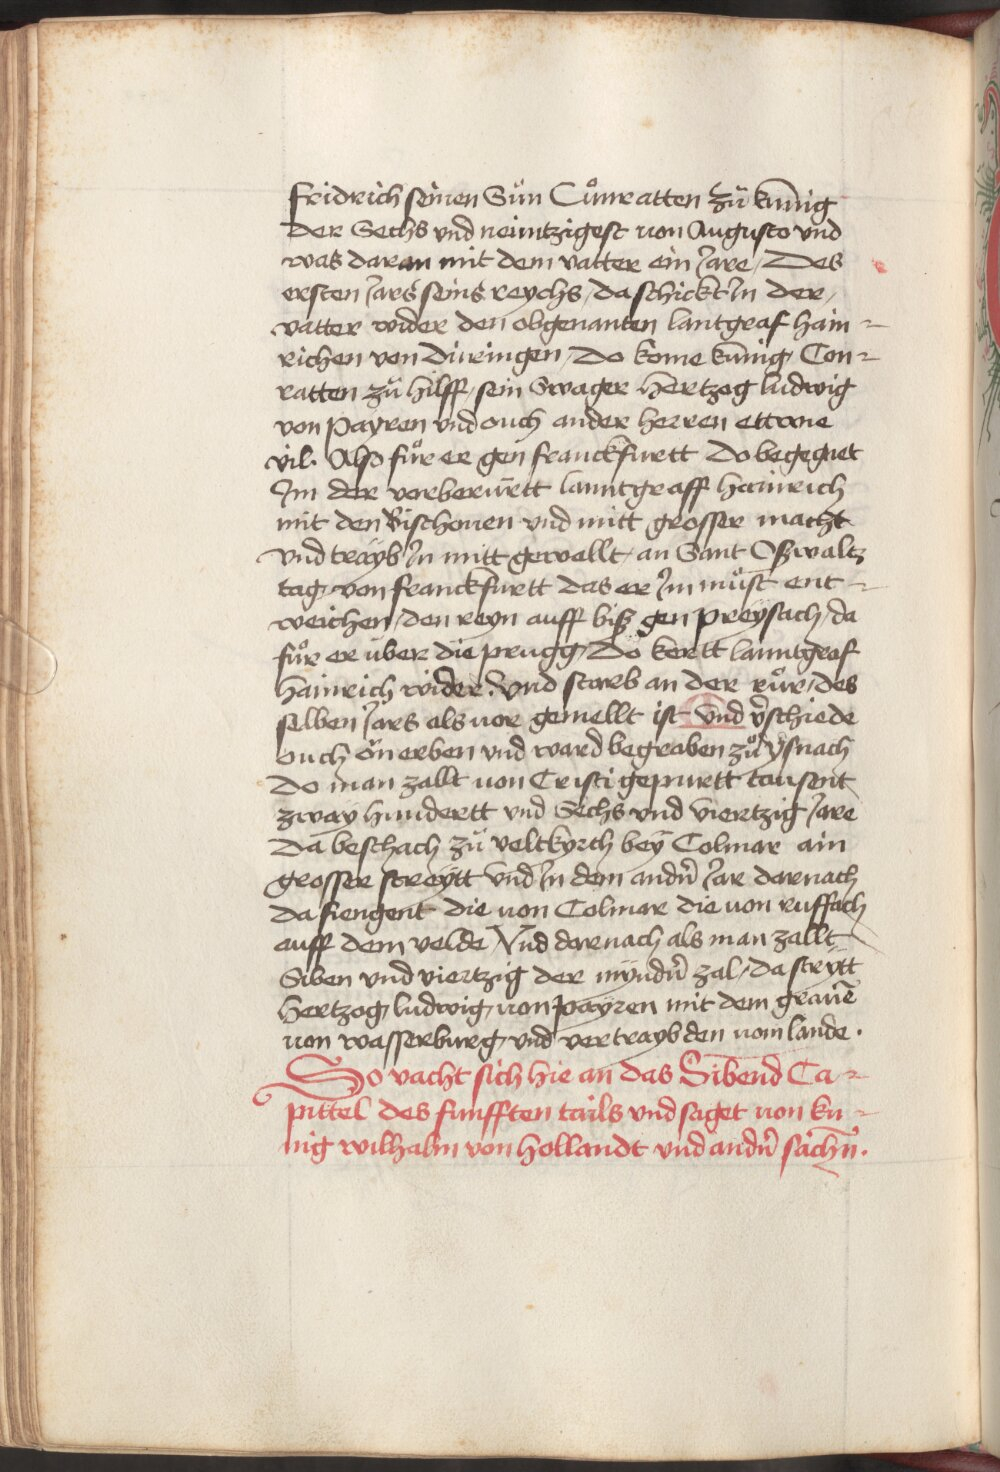 fridrich seinen Sůn Cůnratten zů kunig
der Sechs vnd neuntzigest von Augusto vnd
was daran mit dem vatter ein Jare / Des
ersten Jars seins reychs / da schickt Jn der /
vatter wider den obgenanten lantgraf hain-
richen von düringen / do kome kunig Con-
ratten zů hilff / sein Swager hertzog ludwig
von Payren vnd ouch ander herren ettwie
vil. Also fůr er gen franckfurtt do begegnet
Jm der vorberürtt lanntgraff hainrich
mit den Bischouen vnd mitt grosser macht
vnd trayb Jn mitt gewallt / an Sant Oßwaltz
tag / von franckfurtt das er Jm můst ent-
weichen / den reyn auff biß gen preysach / da
fůr er über die prugg / Do kertt lanntgraf
hainrich wider. Vnd starb an der růr / des
selben Jars als vor gemellt ist vnd v̄schiede
ouch ön erben vnd ward begraben zů ysnach
do man zallt von Cristi gepurtt tausent
zway hundertt vnd Sechs vnd viertzig Jare
Da beschach zů veltkyrch bey Colmar ain
grosser streytt vnd Jn dem andn̄ Jar darnach
da fiengent die von Colmar die von ruffach
auff dem velde / Vnd darnach als man zallt
Siben vnd viertzig der myndn̄ zal / da strytt
hertzog ludwig von payren mit dem grauē
von wasserburg / vnd vertrayb den vom lande.
So vacht sich hie an das Sibend Ca-
pittel des funfften tails vnd saget von ku-
nig wilhalm von hollandt vnd andn̄ sachn̄.